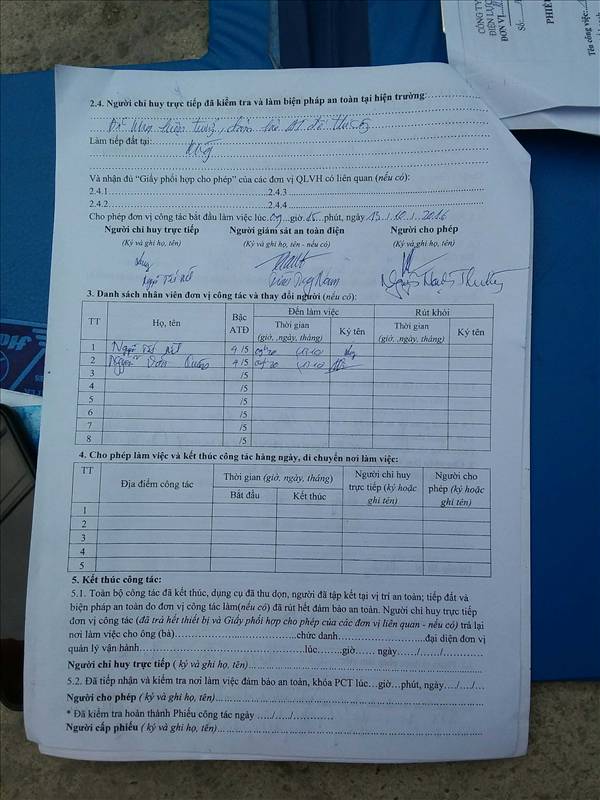 CÔNG TY
ĐIỆN LỰC
ĐƠN VỊ
Số:
PHIẾ
Tên công việc:
2.4. Người chỉ huy trực tiếp đã kiểm tra và làm biện pháp an toàn tại hiện trường:
Làm tiếp đất tại:
Và nhận đủ “Giấy phối hợp cho phép” của các đơn vị QLVH có liên quan (nếu có):
2.4.1 2.4.3
2.4.2 2.4.4
Cho phép đơn vị công tác bắt đầu làm việc lúc 09 giờ 15 phút, ngày 13 / 10 / 2016
Người chỉ huy trực tiếp Người giám sát an toàn điện Người cho phép
(Ký và ghi họ, tên) (Ký và ghi họ, tên - nếu có) (Ký và ghi họ, tên)
3. Danh sách nhân viên đơn vị công tác và thay đổi người (nếu có):
TT Họ, tên Bậc ATĐ Đến làm việc Rút khỏi
Thời gian (giờ, ngày, tháng) Ký tên Thời gian (giờ, ngày, tháng) Ký tên
1 4 /5
2 4 /5
3 /5
4 /5
5 /5
6 /5
7 /5
8 /5
4. Cho phép làm việc và kết thúc công tác hàng ngày, di chuyển nơi làm việc:
TT Địa điểm công tác Thời gian (giờ, ngày, tháng) Người chỉ huy trực tiếp (ký hoặc ghi tên) Người cho phép (ký hoặc ghi tên)
Bắt đầu Kết thúc
1
2
3
4
5
5. Kết thúc công tác:
5.1. Toàn bộ công tác đã kết thúc, dụng cụ đã thu dọn, người đã tập kết tại vị trí an toàn; tiếp đất và
biện pháp an toàn do đơn vị công tác làm(nếu có) đã rút hết đảm bảo an toàn. Người chỉ huy trực tiếp
đơn vị công tác (đã trả hết thiết bị và Giấy phối hợp cho phép của các đơn vị liên quan - nếu có) trả lại
nơi làm việc cho ông (bà) chức danh đại diện đơn vị
quản lý vận hành lúc giờ ngày / /
Người chỉ huy trực tiếp ( ký và ghi họ, tên)
5.2. Đã tiếp nhận và kiểm tra nơi làm việc đảm bảo an toàn, khóa PCT lúc…giờ…phút, ngày…/…/…
Người cho phép ( ký và ghi họ, tên)
* Đã kiểm tra hoàn thành Phiếu công tác ngày …../…./…………
Người cấp phiếu ( ký và ghi họ, tên)